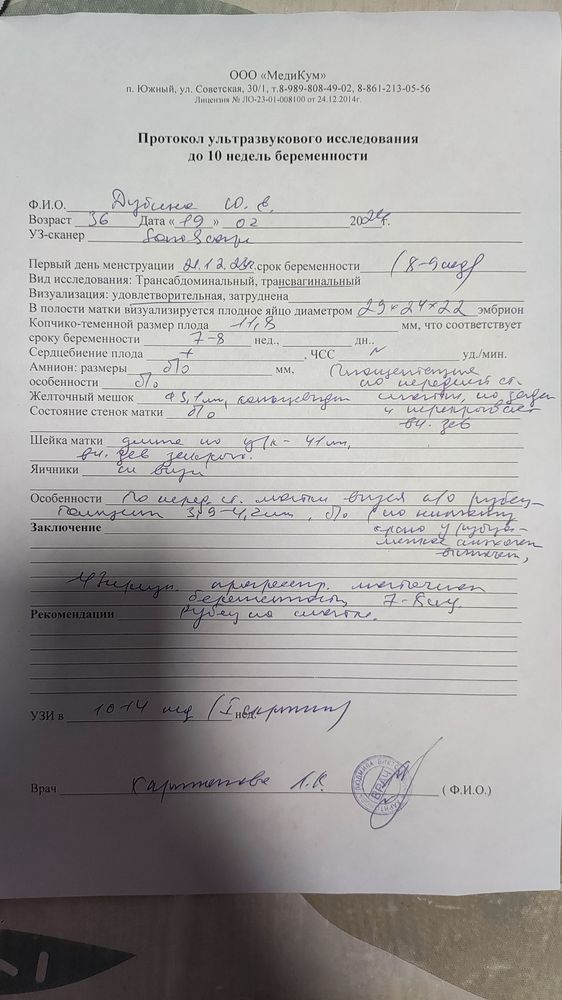 ООО «МедиКум»
п. Южный, ул. Советская, 30/1, т.8-989-808-49-02, 8-861-213-05-56
Лицензия № ЛО-23-01-008100 от 24.12.2014г.
Протокол ультразвукового исследования
до 10 недель беременности
Ф.И.О. Дубина Ю. В.
Возраст 36 Дата « 19 » 02 2024г.
УЗ-сканер SonoScape
Первый день менструации 21.12.23г. срок беременности (8-9 нед)
Вид исследования: Трансабдоминальный, трансвагинальный
Визуализация: удовлетворительная, затруднена
В полости матки визуализируется плодное яйцо диаметром 29×24×22 эмбрион
Копчико-теменной размер плода 11,8 мм, что соответствует
сроку беременности 7-8 нед., дн..
Сердцебиение плода + , ЧСС N уд./мин.
Амнион: размеры б/о мм, Плацентация
особенности б/о по передней ст.
Желточный мешок Ф 3,1 мм, матки, по
Состояние стенок матки б/о и перекрывает
вн. зев
Шейка матки длина по ц/к - 41 мм,
вн. зев закрыт.
Яичники б/о
Особенности По перед. ст. матки визуал п/о рубец -
толщина 3,9-4,2 мм, б/о
Заключение
прогрессир. маточная
беременность 7-8 нед.
Рекомендации Рубец на матке.
УЗИ в 10-14 нед (I скрининг) нед.
Врач Л.В. ( Ф.И.О.)
ВРАЧ